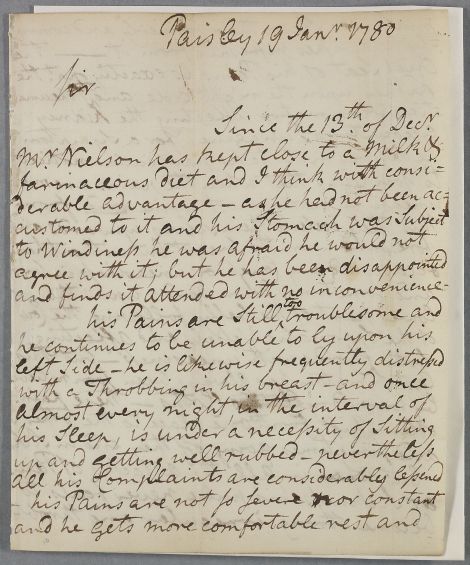 Paisley 19 Janr. 1780
Sir
Since the 13th. of Decr.
Mr. Nielson has kept close to a Milk &
farinaceous diet and I think with consi-
derable advantage - as he had not been ac-
customed to it and his Stomach was Subject
to Windiness he was afraid he would not
agree with it; but he has been disappointed
and finds it attended with no inconvenience-
his Pains are Still too troublesome and
he continues to be unable to ly upon his
left Side - he is likewise frequently distressed
with a Throbbing in his breast - and once
almost every night in the interval of
his Sleep, is under a necessity of Sitting
up and getting well rubbed - nevertheless
all his Complaints are considerably lessend
- his Pains are not so severe nor constant
and he gets more comfortable rest and